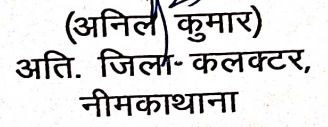 (अनिल कुमार)
अति. जिला- कलक्टर,
नीमकाथाना